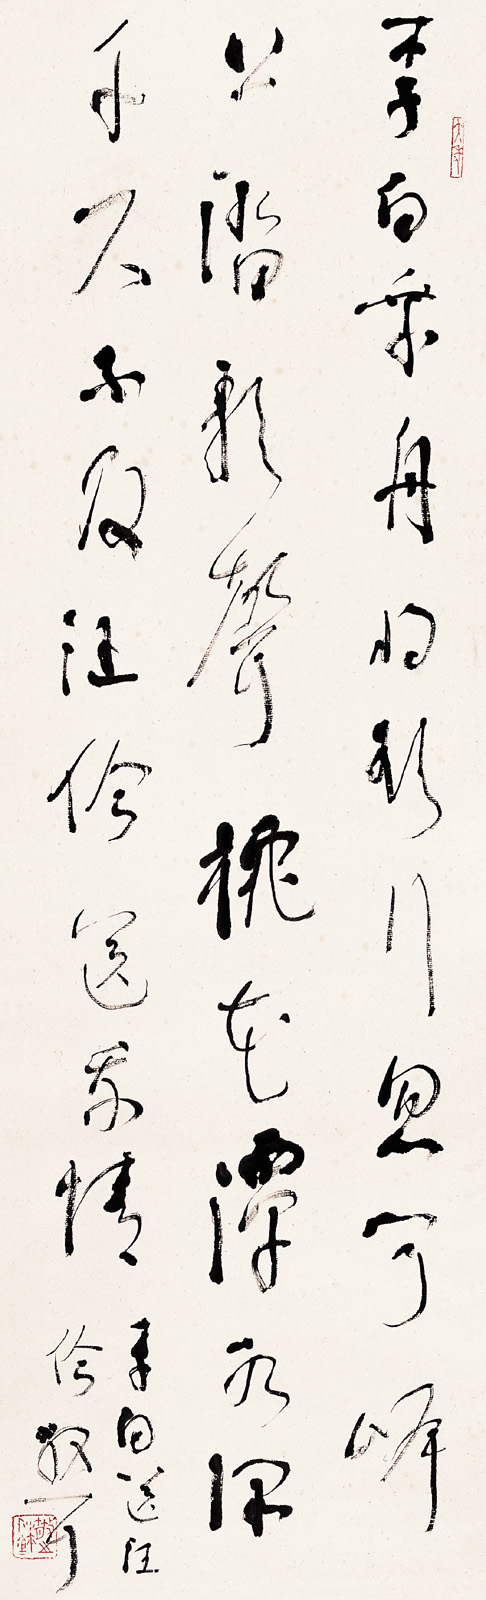 李白乘舟將欲行忽聞岸
上踏歌聲桃花潭水深
千尺不及汪倫送我情
李白送汪
倫 散耳